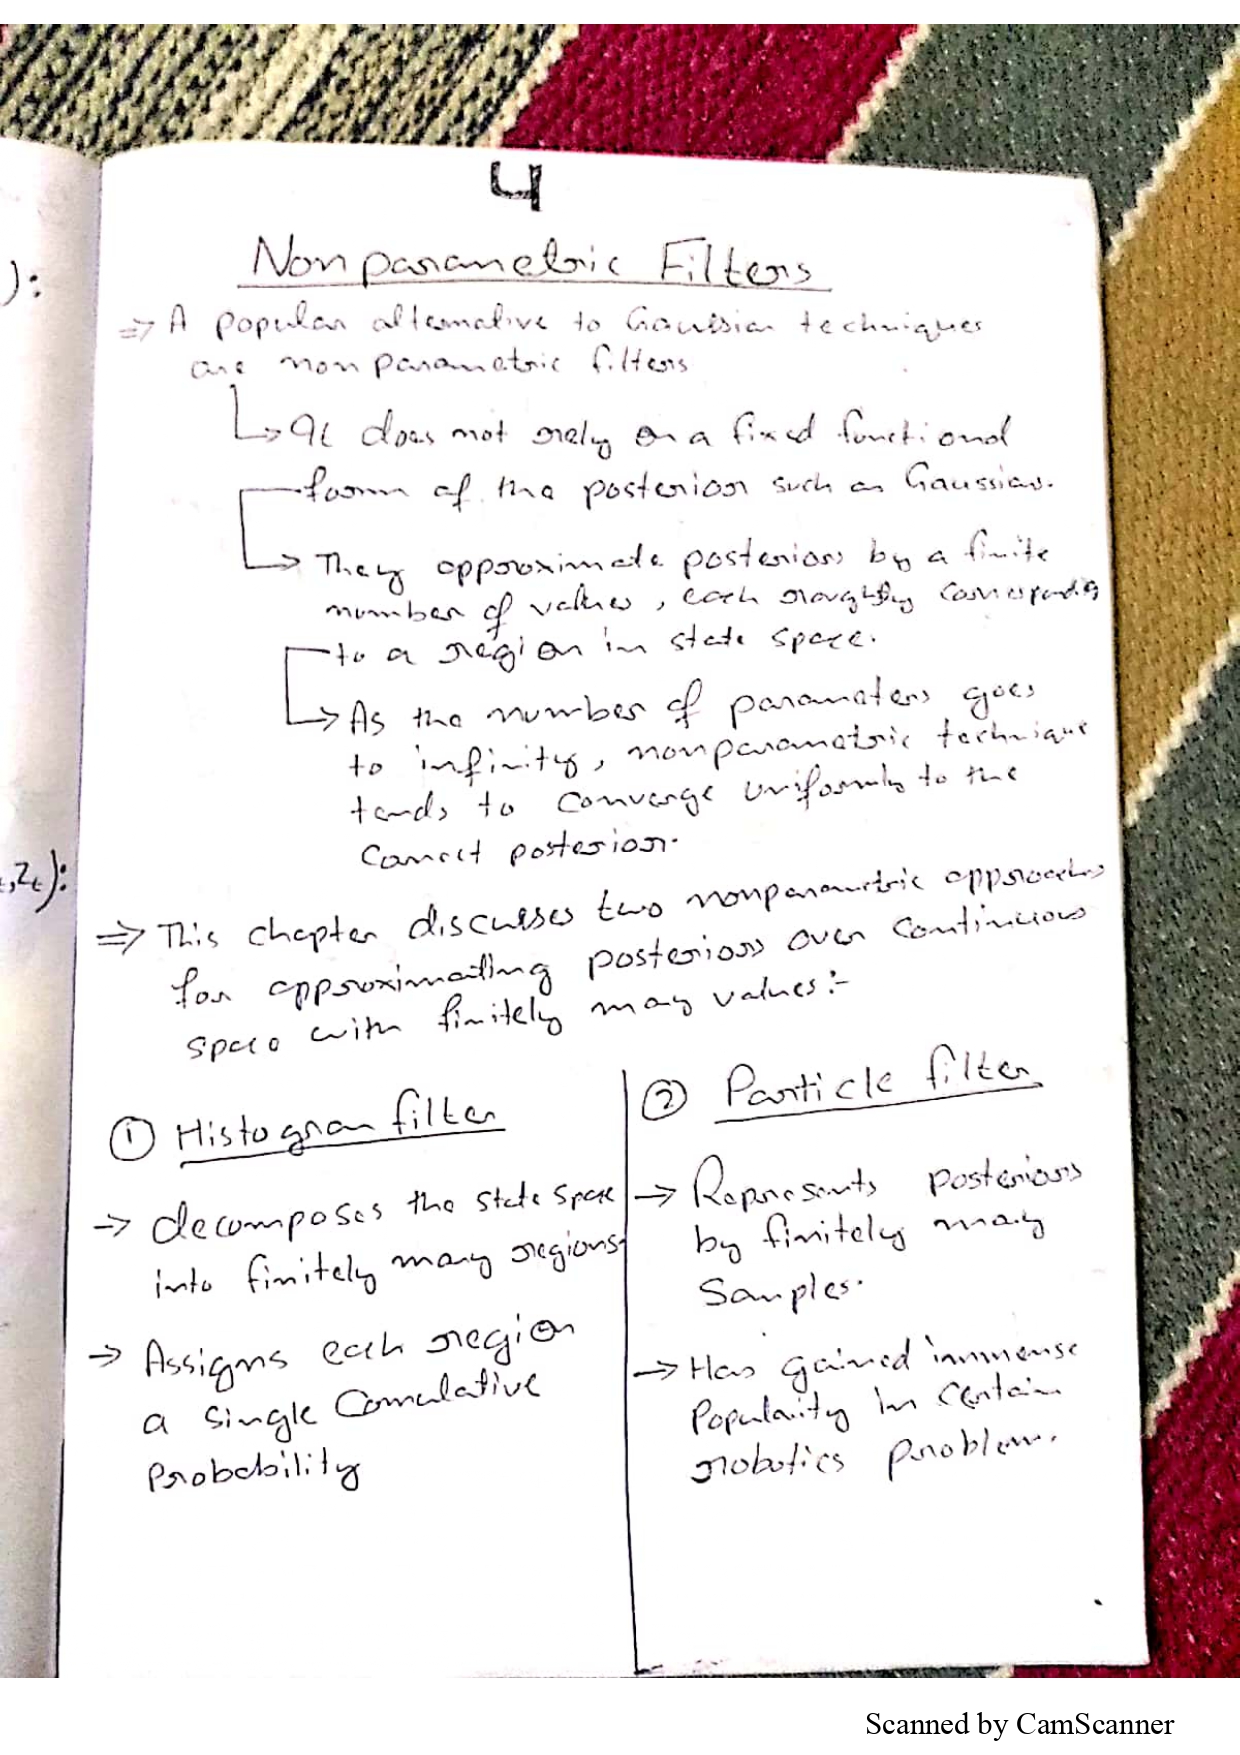 4
Nonparametric Filters
⇒ A popular alternative to Gaussian techniques
are nonparametric filters
↳ It does not rely on a fixed functional
form of the posterior such as Gaussian.
→ They approximate posteriors by a finite
number of values, each roughly corresponding
to a region in state space.
→ As the number of parameters goes
to infinity, nonparametric technique
tends to converge uniformly to the
correct posterior.
⇒ This chapter discusses two nonparametric approaches
for approximating posteriors over continuous
space with finitely may values:-
① Histogram filter
→ decomposes the state space
into finitely many regions.
→ Assigns each region
a single Comulative
Probability
② Particle filter
→ Represents posteriors
by finitely may
Samples.
→ Has gained immense
Popularity in certain
robotics problem.
):
,Zt):
Scanned by CamScanner